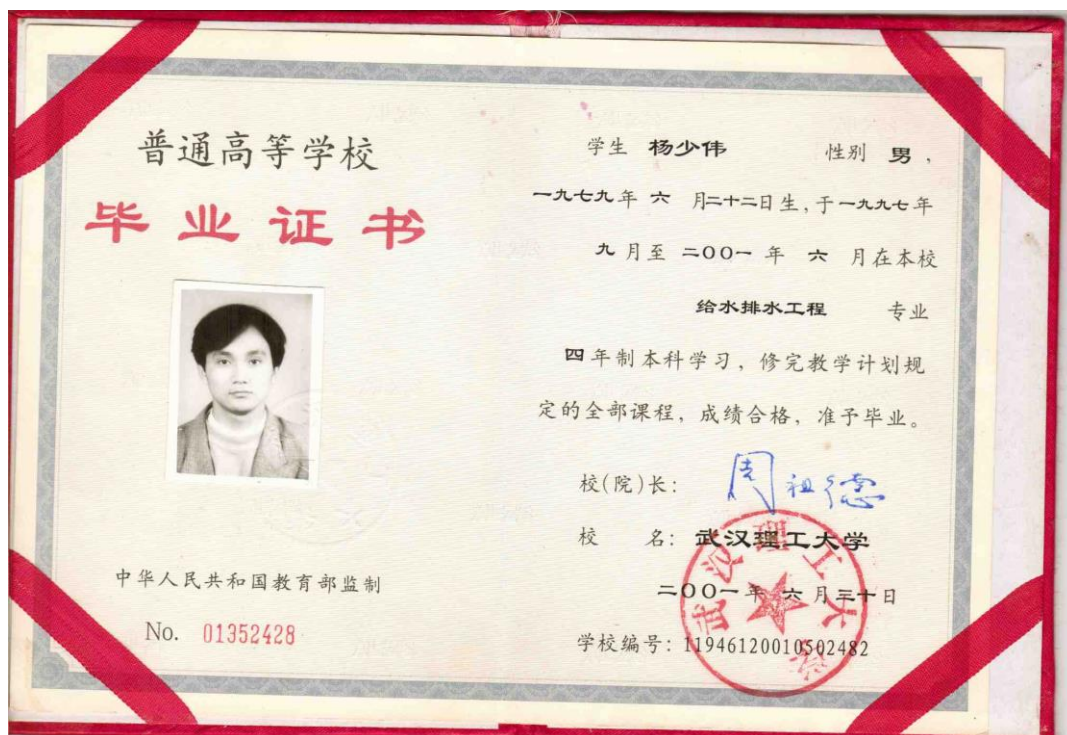 普通高等学校
毕业证书
中华人民共和国教育部监制
No. 01352428
学生 杨少伟 性别 男，
一九七九年 六 月二十二日生，于一九九七年
九 月至 二00一 年 六 月在本校
给水排水工程 专业
四年制本科学习，修完教学计划规
定的全部课程，成绩合格，准予毕业。
校(院)长： 周祖德
校 名： 武汉理工大学
二00一年 六 月三十日
学校编号：11946120010502482
武汉理工大学